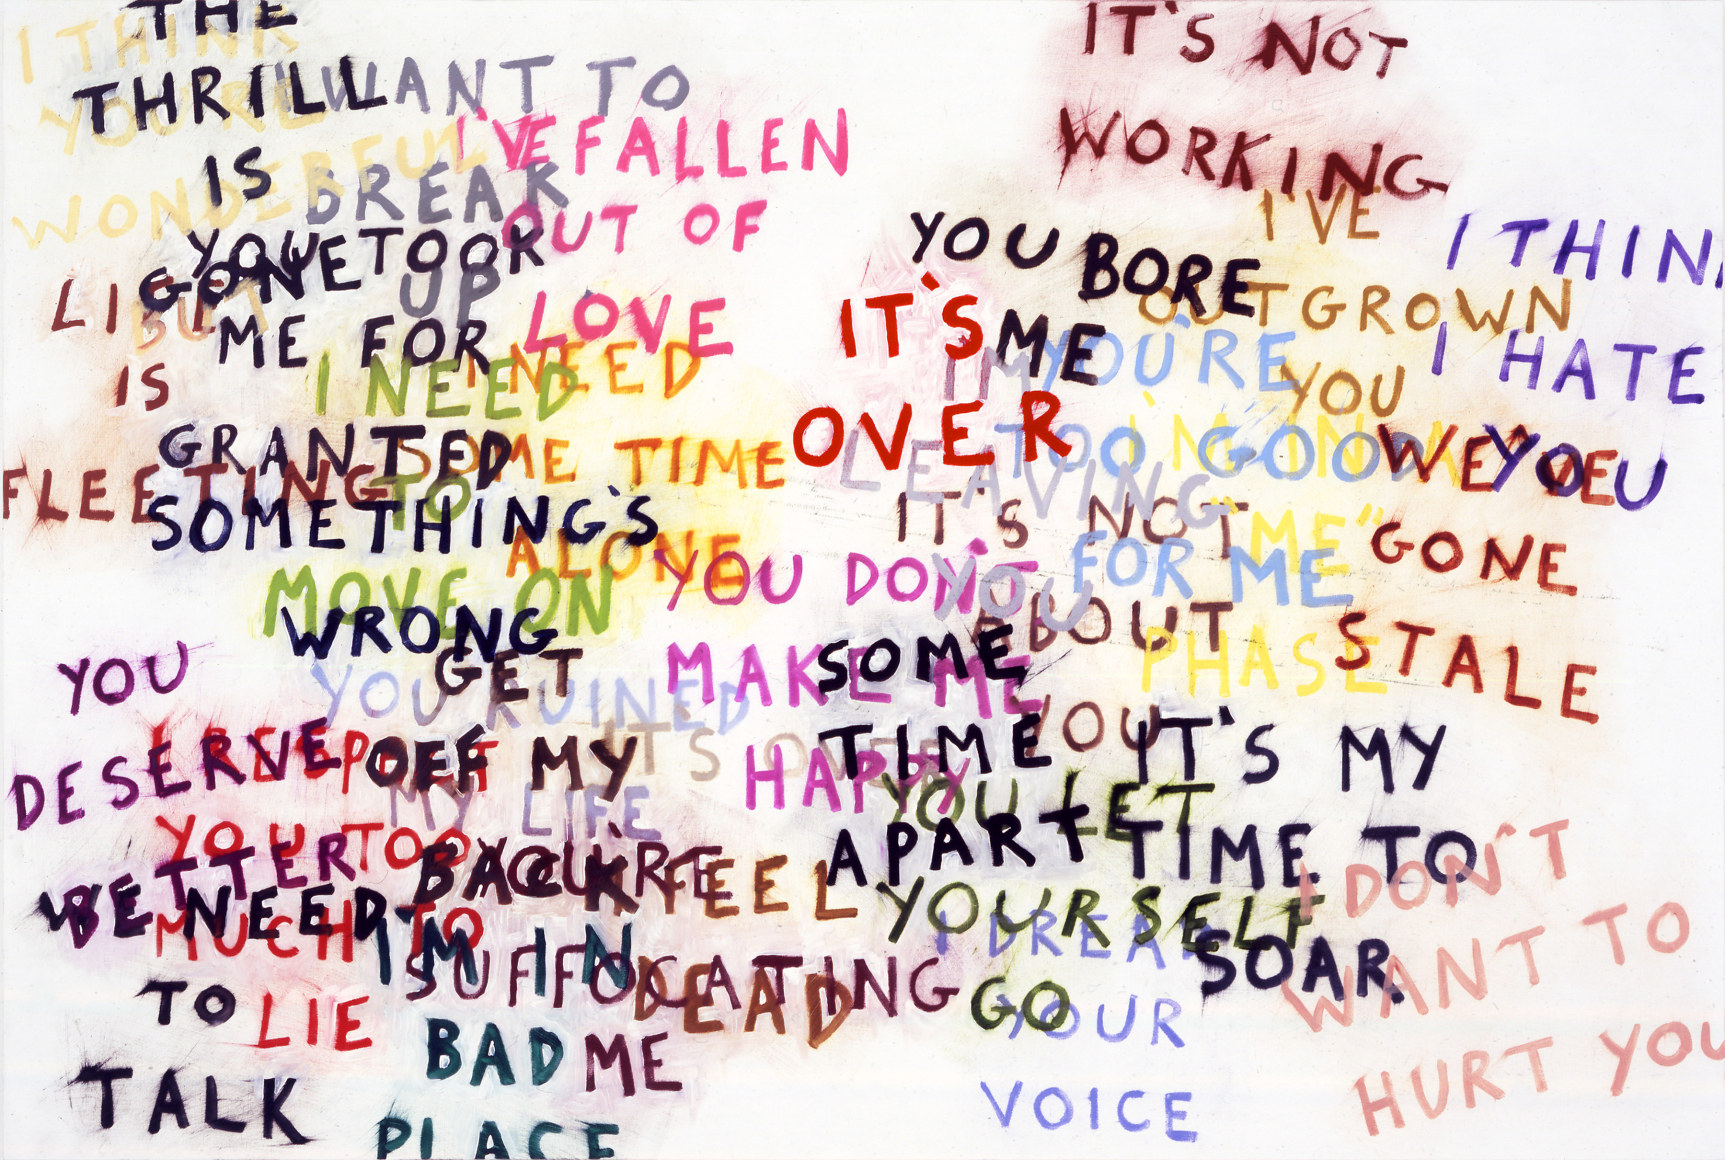 THE
THRILL
IS
GONE
I THINK
YOU'RE
WONDERFUL
BUT
I WANT TO
BREAK
UP
I'VE FALLEN
OUT OF
LOVE
YOU TOOK
ME FOR
GRANTED
IS
FLEETING
I NEED
TO
MOVE ON
I NEED
SOME TIME
ALONE
SOMETHING'S
WRONG
IT'S NOT
WORKING
YOU BORE
ME
I'VE
OUTGROWN
YOU
I THINK
I HATE
YOU
IT'S
OVER
I'M
LEAVING
YOU
YOU'RE
TOO GOOD
FOR ME
I'M IN A
"ME"
PHASE
WE'VE
GONE
STALE
IT'S NOT
ABOUT
YOU
YOU DON'T
MAKE ME
HAPPY
YOU
DESERVE
BETTER
YOU RUINED
MY LIFE
GET
OFF MY
BACK
IT'S OVER
SOME
TIME
APART
IT'S MY
TIME TO
SOAR.
YOU LET
YOURSELF
GO
YOU TOO
MUCH TO
LIE
WE NEED
TO
TALK
YOU'RE
SUFFOCATING
ME
I FEEL
DEAD
I'M IN
BAD
PLACE
I DREAD
YOUR
VOICE
I DON'T
WANT TO
HURT YOU